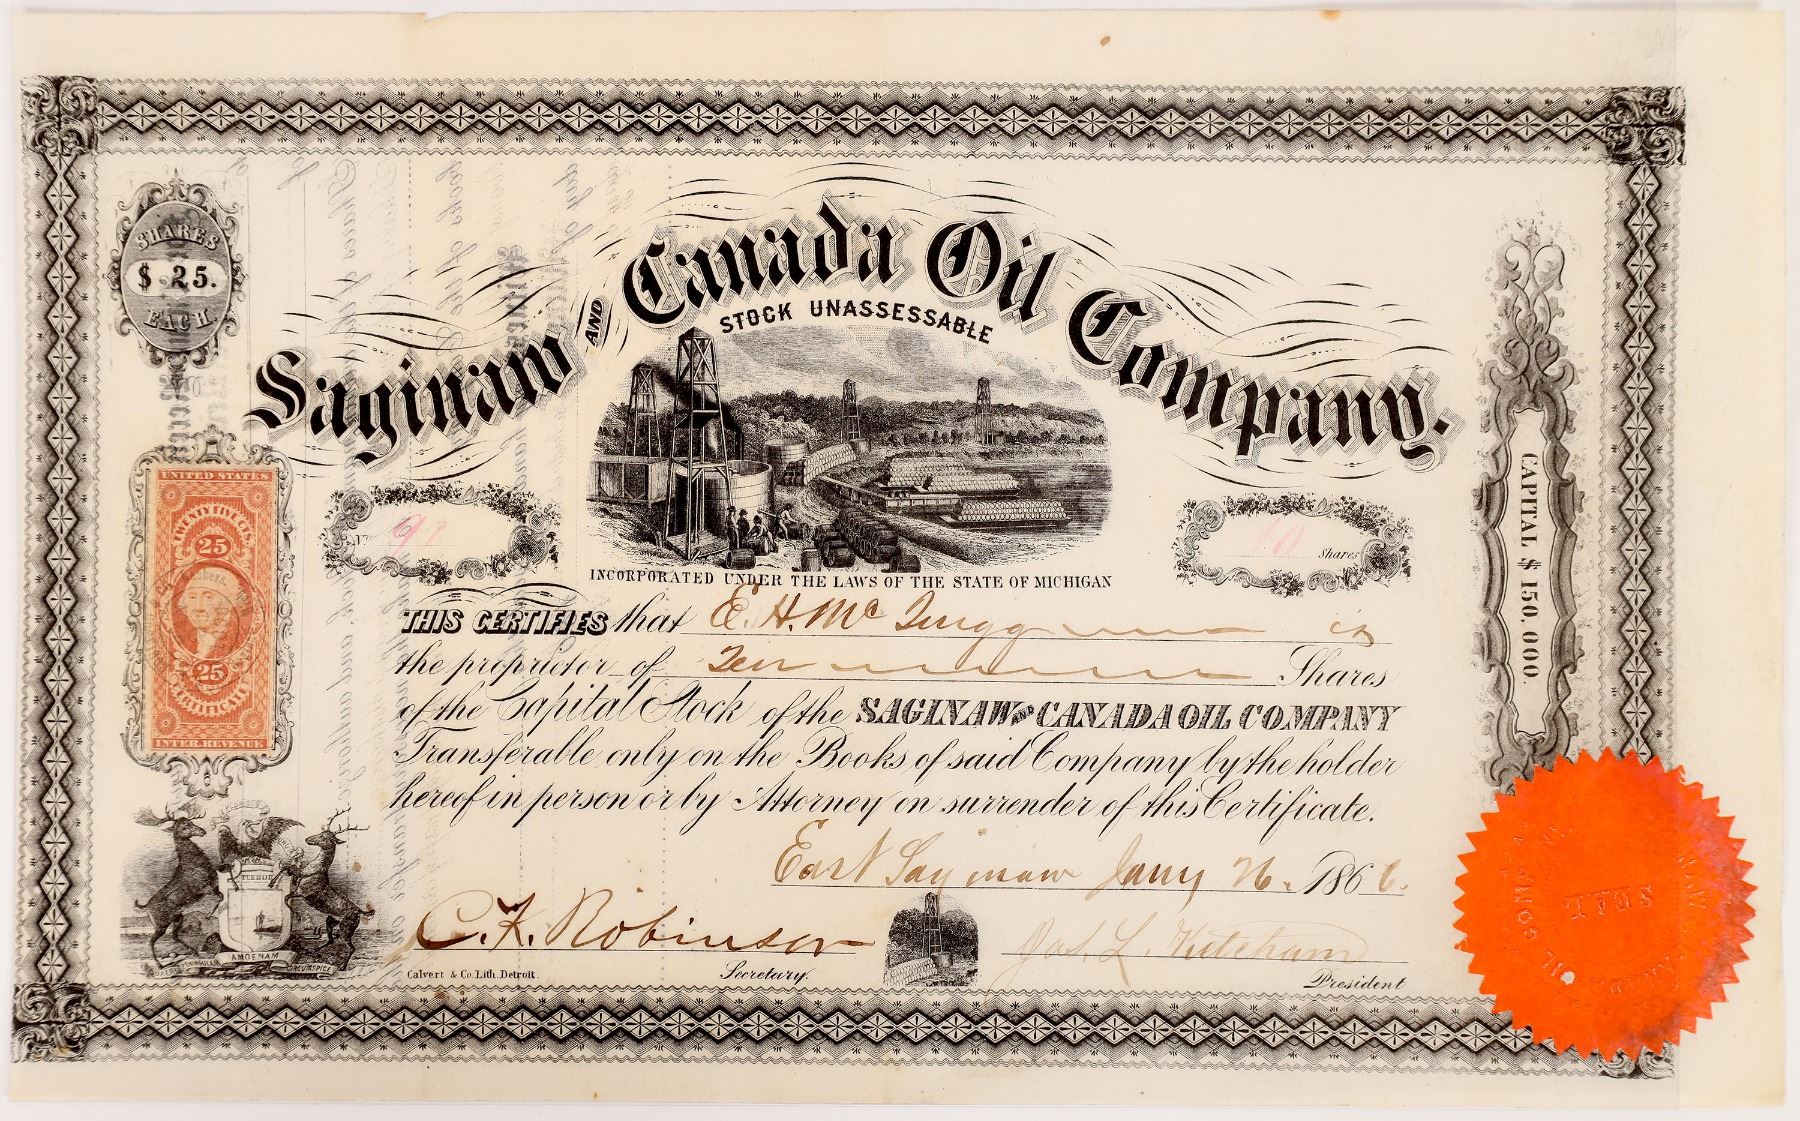 SHARES
$ 25.
EACH.
Saginaw AND Canada Oil Company.
STOCK UNASSESSABLE
CAPITAL $ 150,000.
UNITED STATES
TWENTY FIVE CTS.
25
25
CERTIFICATE
INTER. REVENUE
No 91
10 Shares
INCORPORATED UNDER THE LAWS OF THE STATE OF MICHIGAN
THIS CERTIFIES that E. H. Mc is
the proprietor of Ten Shares
of the Capital Stock of the SAGINAW AND CANADA OIL COMPANY
Transferable only on the Books of said Company by the holder
hereof in person or by Attorney on surrender of this Certificate.
East Saginaw Jany 26. 1866.
TUEBOR
AMOENAM
CIRCUMSPICE
C. F. Robinson
Jas. L. Ketcham
Calvert & Co. Lith. Detroit.
Secretary.
President
SEAL